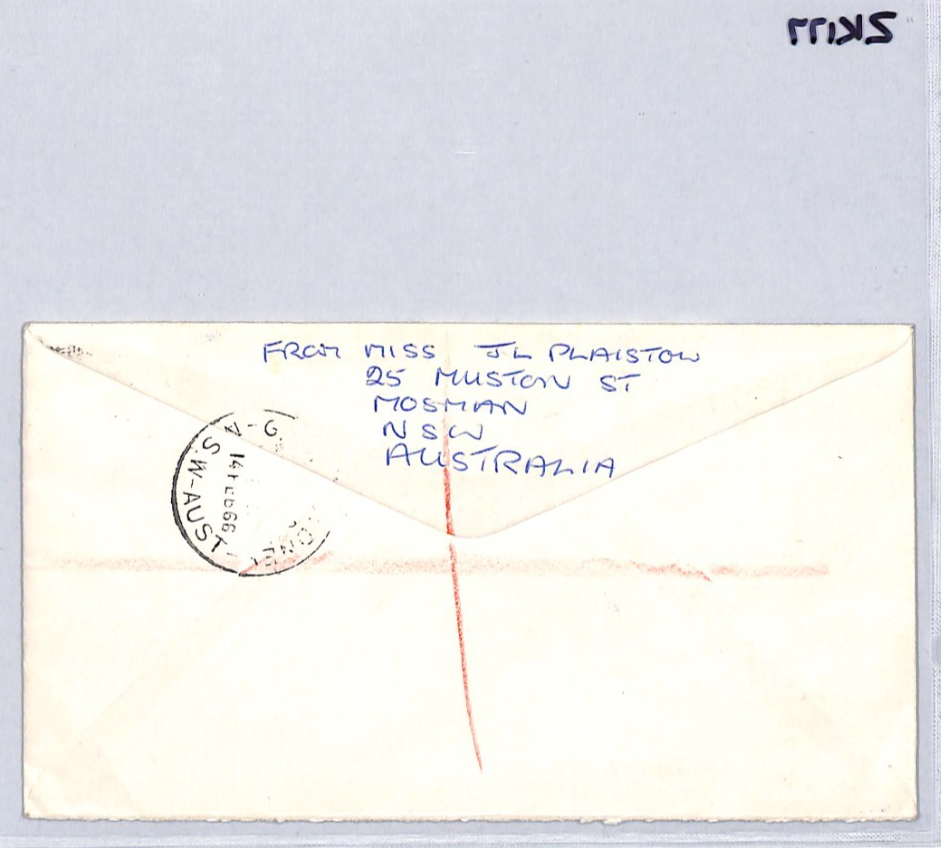 ZK177
FROM MISS JL PLAISTOW
25 MUSTON ST
MOSMAN
NSW
AUSTRALIA
14 FEB 66
S.W-AUST-